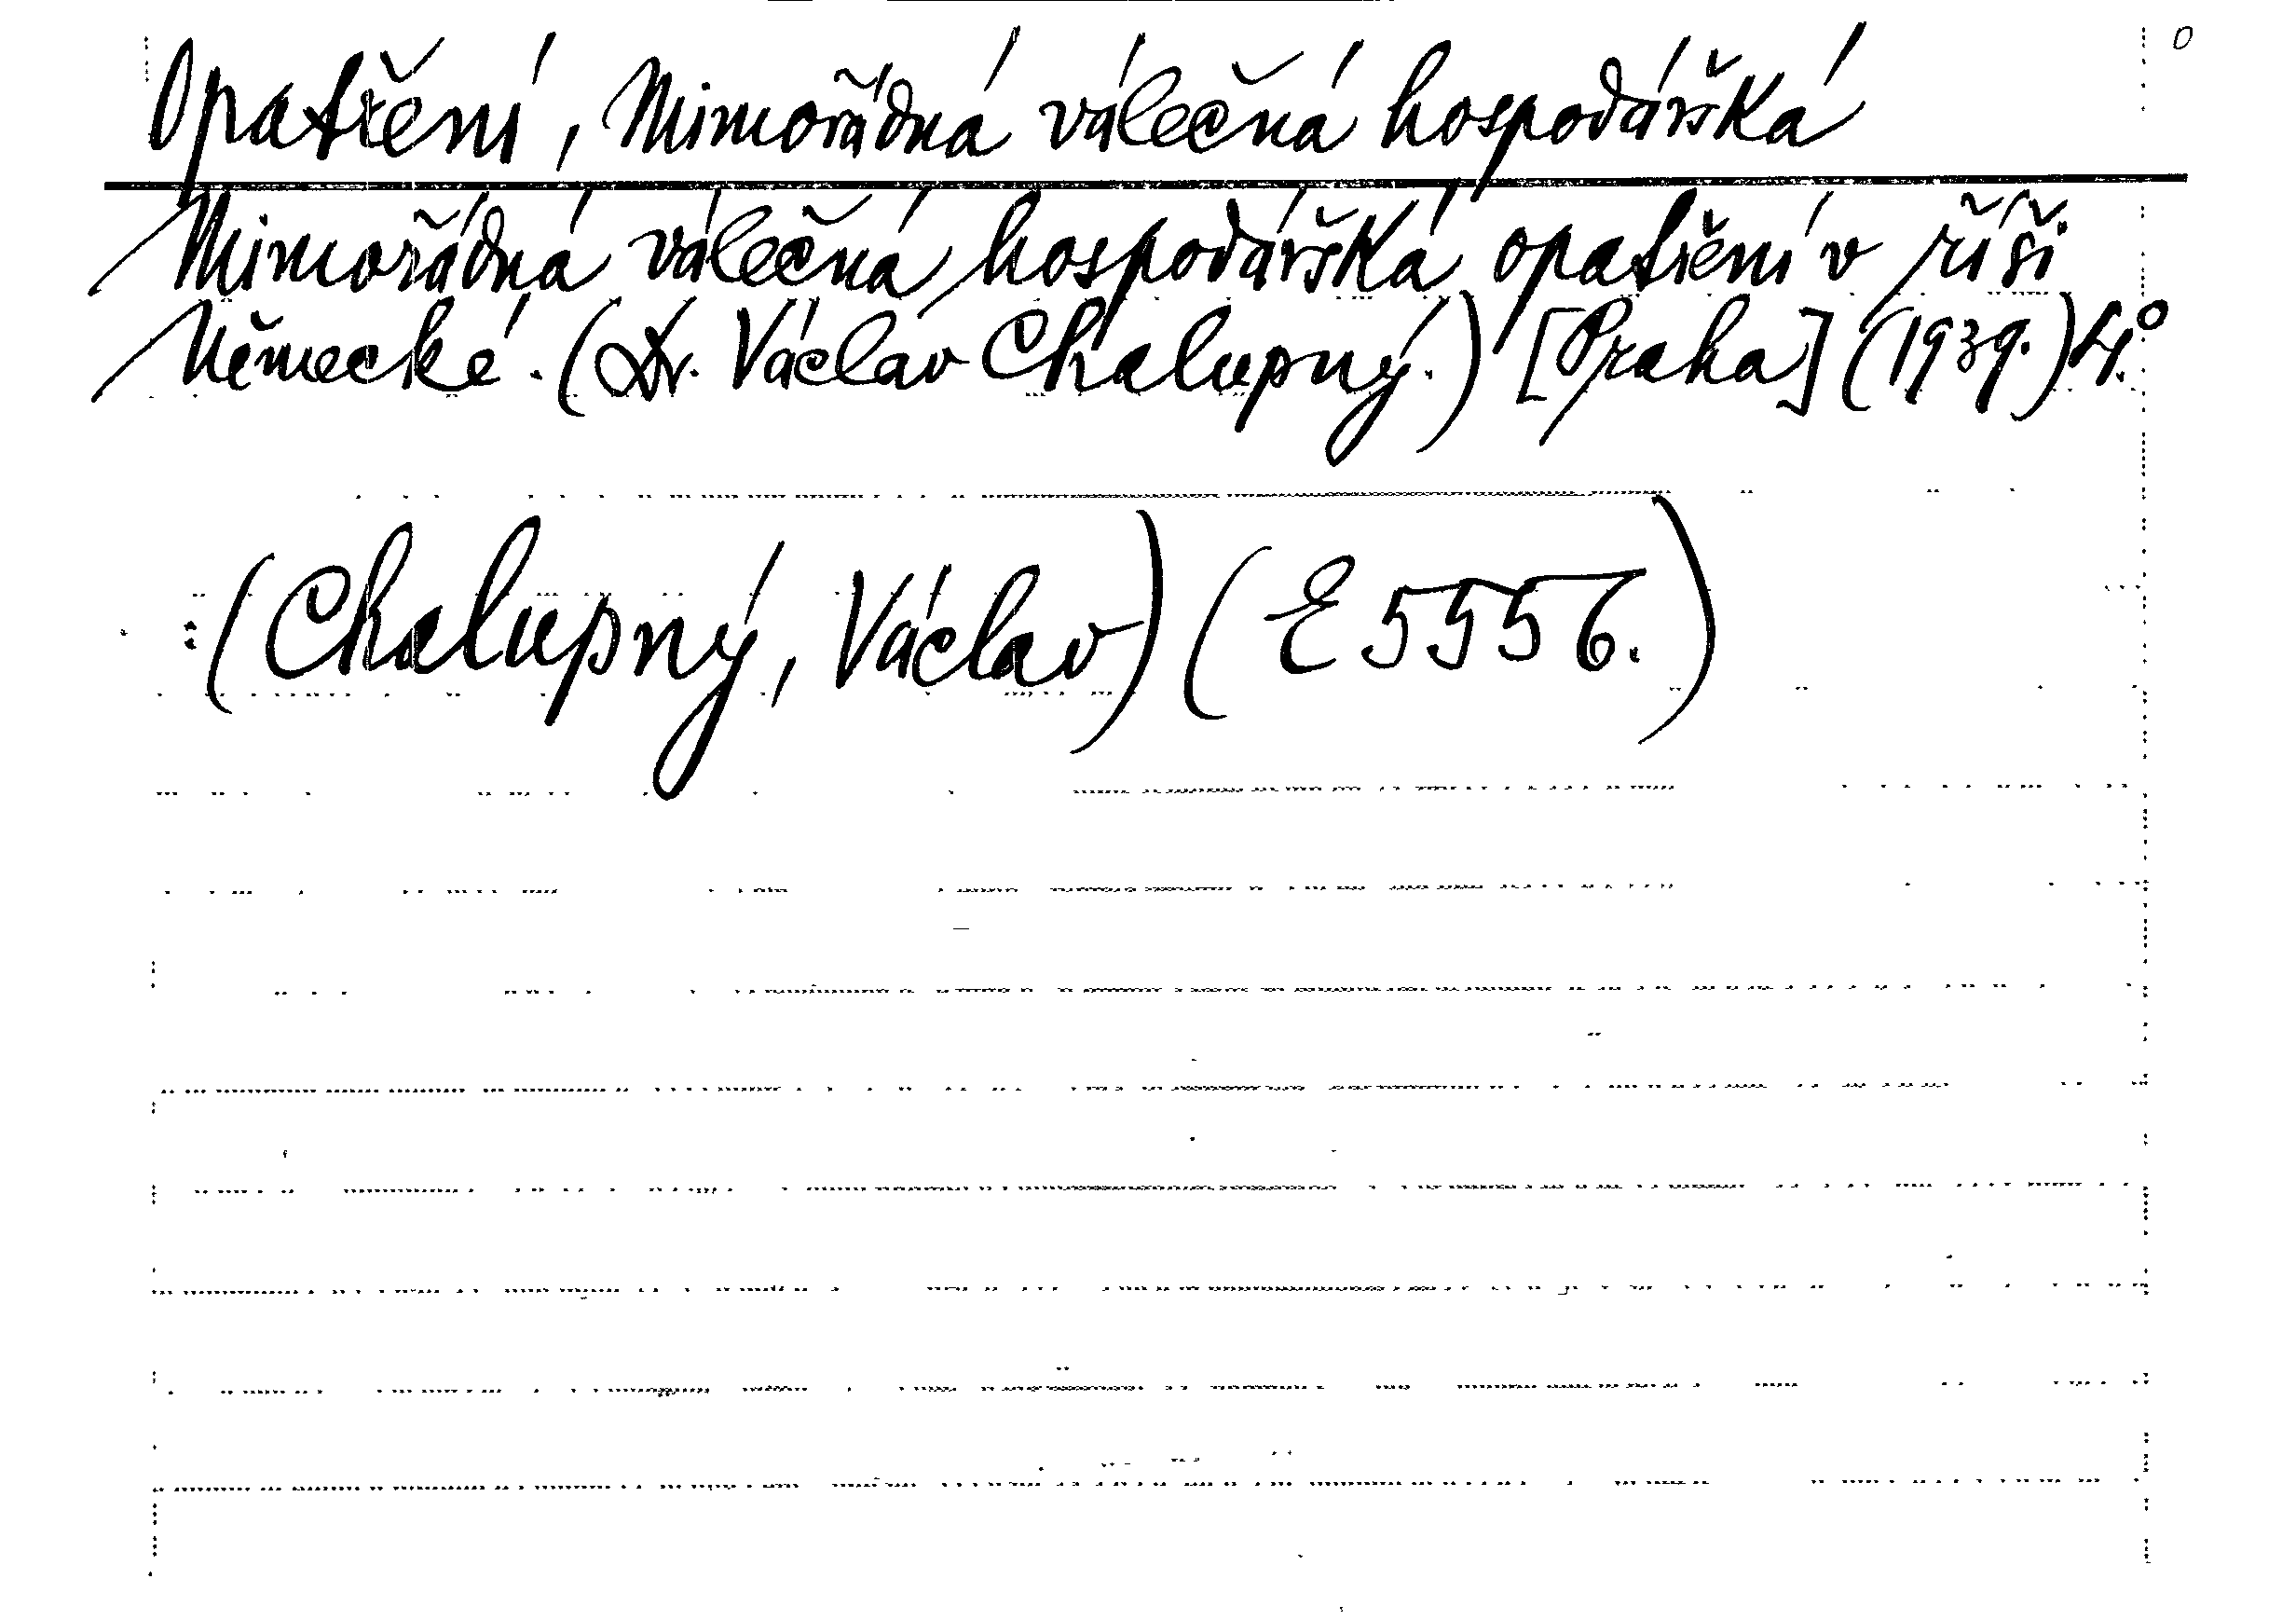 Opatření, Mimořádná válečná hospodářská
Mimořádná válečná hospodářská opatření v říši
Německé. (Dr. Václav Chalupný.) [Praha] (1939.) 4.°
(Chalupný, Václav) (E 5556.)